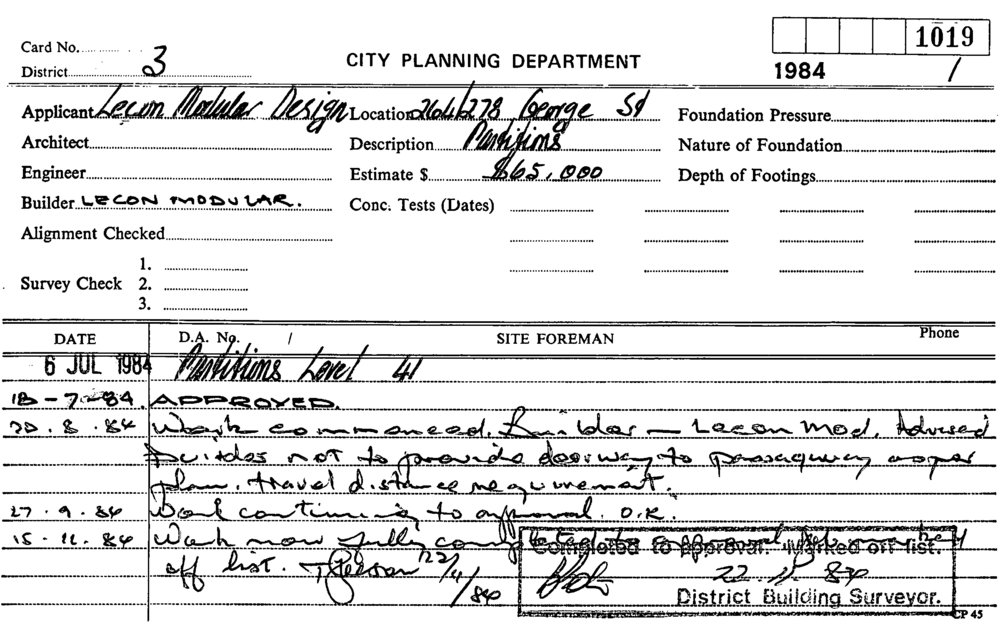 Card No.
1019
District 3
CITY PLANNING DEPARTMENT
1984 /
Applicant Lecon Modular Design Location 264/278 George St Foundation Pressure
Architect Description Partitions Nature of Foundation
Engineer Estimate $ $65,000 Depth of Footings
Builder LECON MODULAR. Conc. Tests (Dates)
Alignment Checked
1.
Survey Check 2.
3.
DATE D.A. No. / SITE FOREMAN Phone
6 JUL 1984 Partitions Level 41
18-7-84. APPROVED.
20.8.84 Work commenced. Builder - Lecon Mod. Advised
builder not to provide doorway to passageway as per
plan. travel distance requirement.
27.9.84 Work continuing to approval. O.K.
15.11.84 Work now fully completed to approval
off list. 22/11/84
Completed to approval. Marked off list.
22.11.84
District Building Surveyor.
CP 45